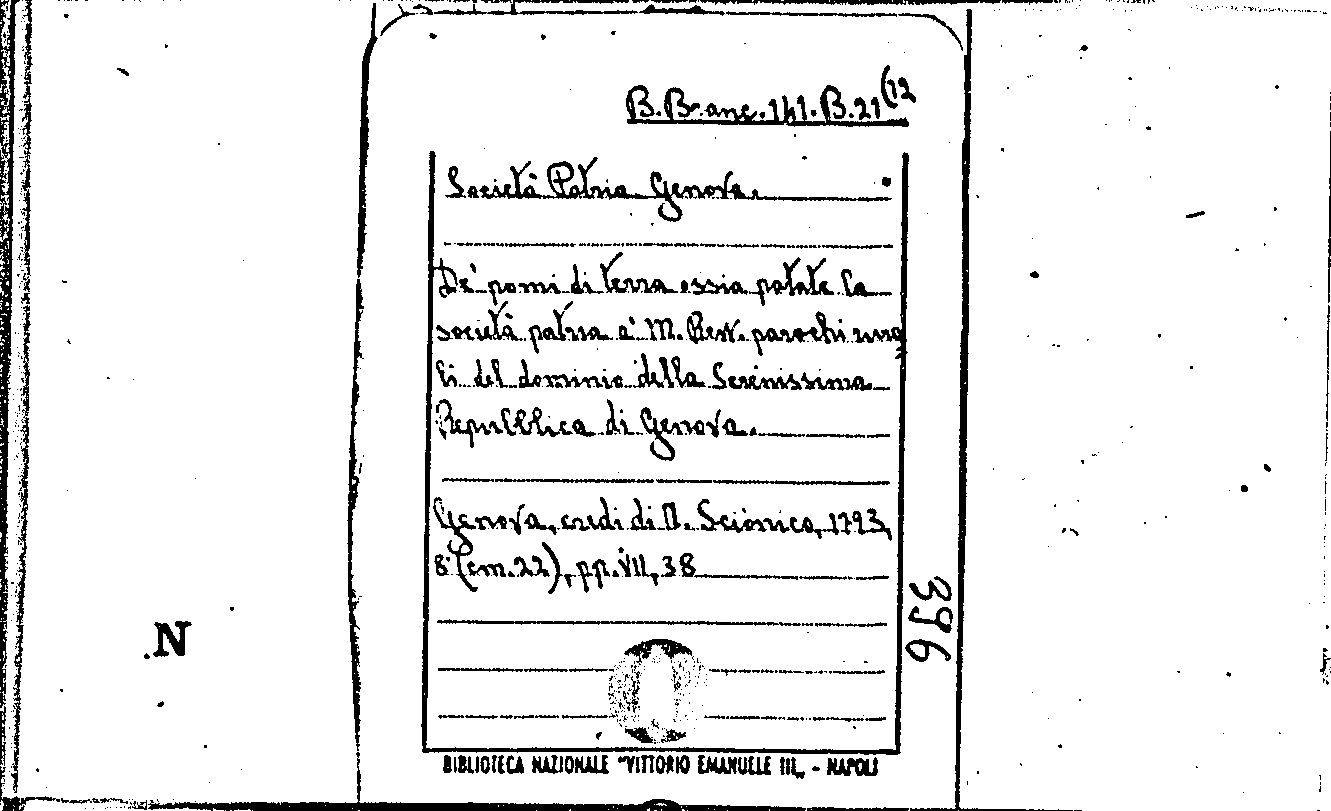 B. Branc. 141. B. 21(12
Società Patria Genova.
De' pomi di terra ossia patate la
società patria a' M. Rev. parochi rura
li del dominio della Serenissima
Repubblica di Genova.
Genova, eredi di A. Scionico, 1793,
8° (cm. 22), pp. VII, 38
396
N
BIBLIOTECA NAZIONALE "VITTORIO EMANUELE III„ - NAPOLI